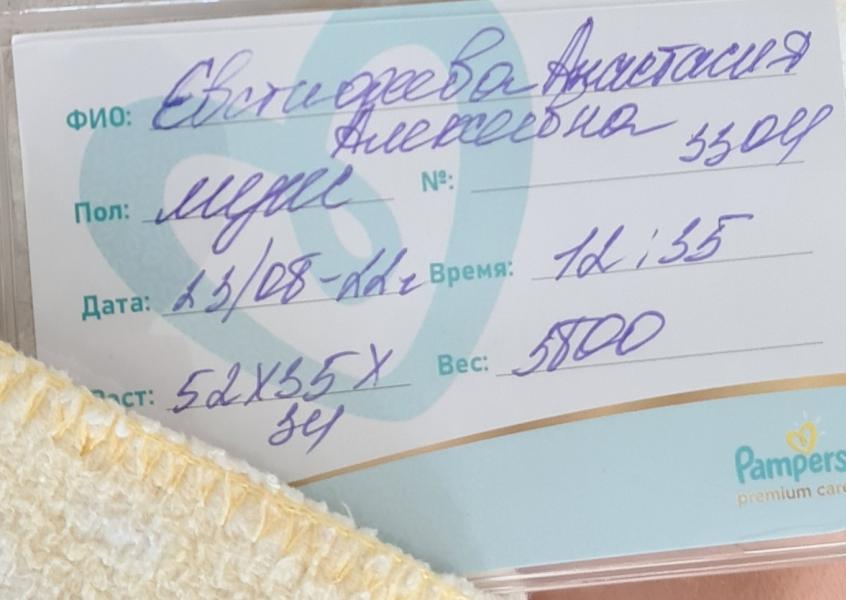 ФИО: Евстифеева Анастасия
Алексеевна 3304
Пол: муж №:
Дата: 23/08-22г Время: 12:35
Рост: 52х35х Вес: 3800
34
Pampers
premium care